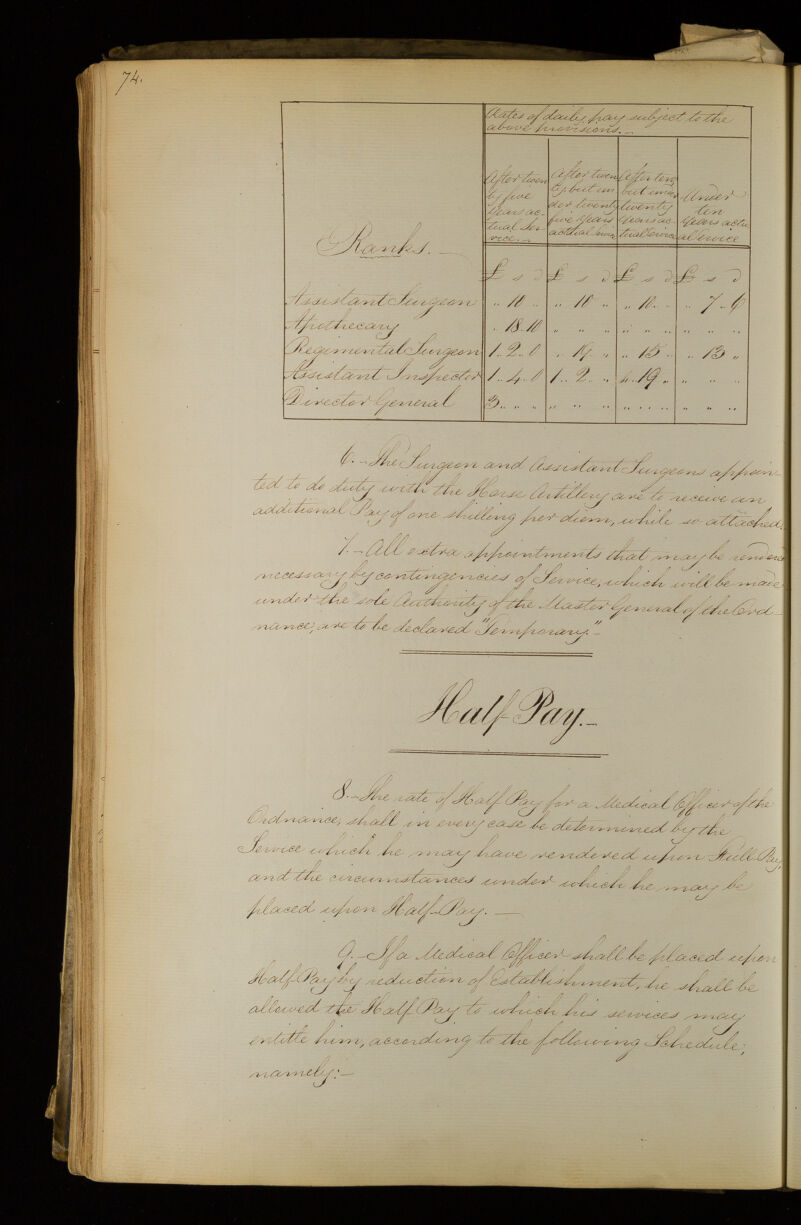 74.
Rates of daily pay subject to the
above provisions. –
Ranks. –
After twen
ty five
Years ac-
tual Ser
vice. –
After twen
ty but un
der twenty
five Years
actual Servic
After ten
but under
twenty
Years ac-
tual Service
Under
ten
Years actu
al Service
£ s d £ s d £ s d £ s d
Assistant Surgeon " 10 " " 10 " " 10 " " 7 " 6
Apothecary " 18 " 10 " " " " " " " " "
Regimental Surgeon 1 " 2 " 0 " 19 " " 15 " " 13 "
Assistant Inspector 1 " 4 " 0 1 " 2 " " " 19 " " " "
Director General 3 " " " " " " " " " " "
6. – The Surgeon and Assistant Surgeons appoin-
ted to do duty with the Horse Artillery are to receive an
additional Pay of one shilling per diem, while so attached.
7. – All extra appointments that may be rendered
necessary, by contingencies of Service, which will be made
under the sole Authority of the Master General of the Ord-
nance; are to be declared "Temporary."
Half Pay. –
8. – The rate of Half Pay for a Medical Officer of the
Ordnance, shall in every case be determined by the
Service which he may have rendered upon Full Pay,
and the circumstances under which he may be
placed upon Half-Pay. –
9. – If a Medical Officer shall be placed upon
Half Pay by reduction of Establishment, he shall be
allowed the Half Pay to which his services may
entitle him, according to the following Schedule;
namely: –